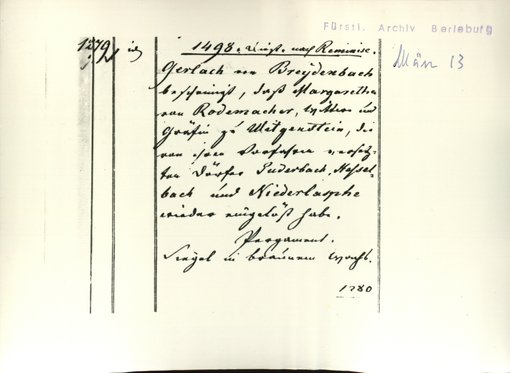 Fürstl. Archiv Berleburg
März 13
1498. Dinst. nach Reminisc.
Gerlach von Breydenbach
bescheinigt, daß Margaretha
von Rodemacher, Wittwe und
Gräfin zu Witgenstein, die
von ihren Vorfahren versetz-
ten Dörfer Puderbach, Hessel-
bach und Niederlasphe
wieder eingelößt habe.
Pergament.
Siegel in braunem Wachs.